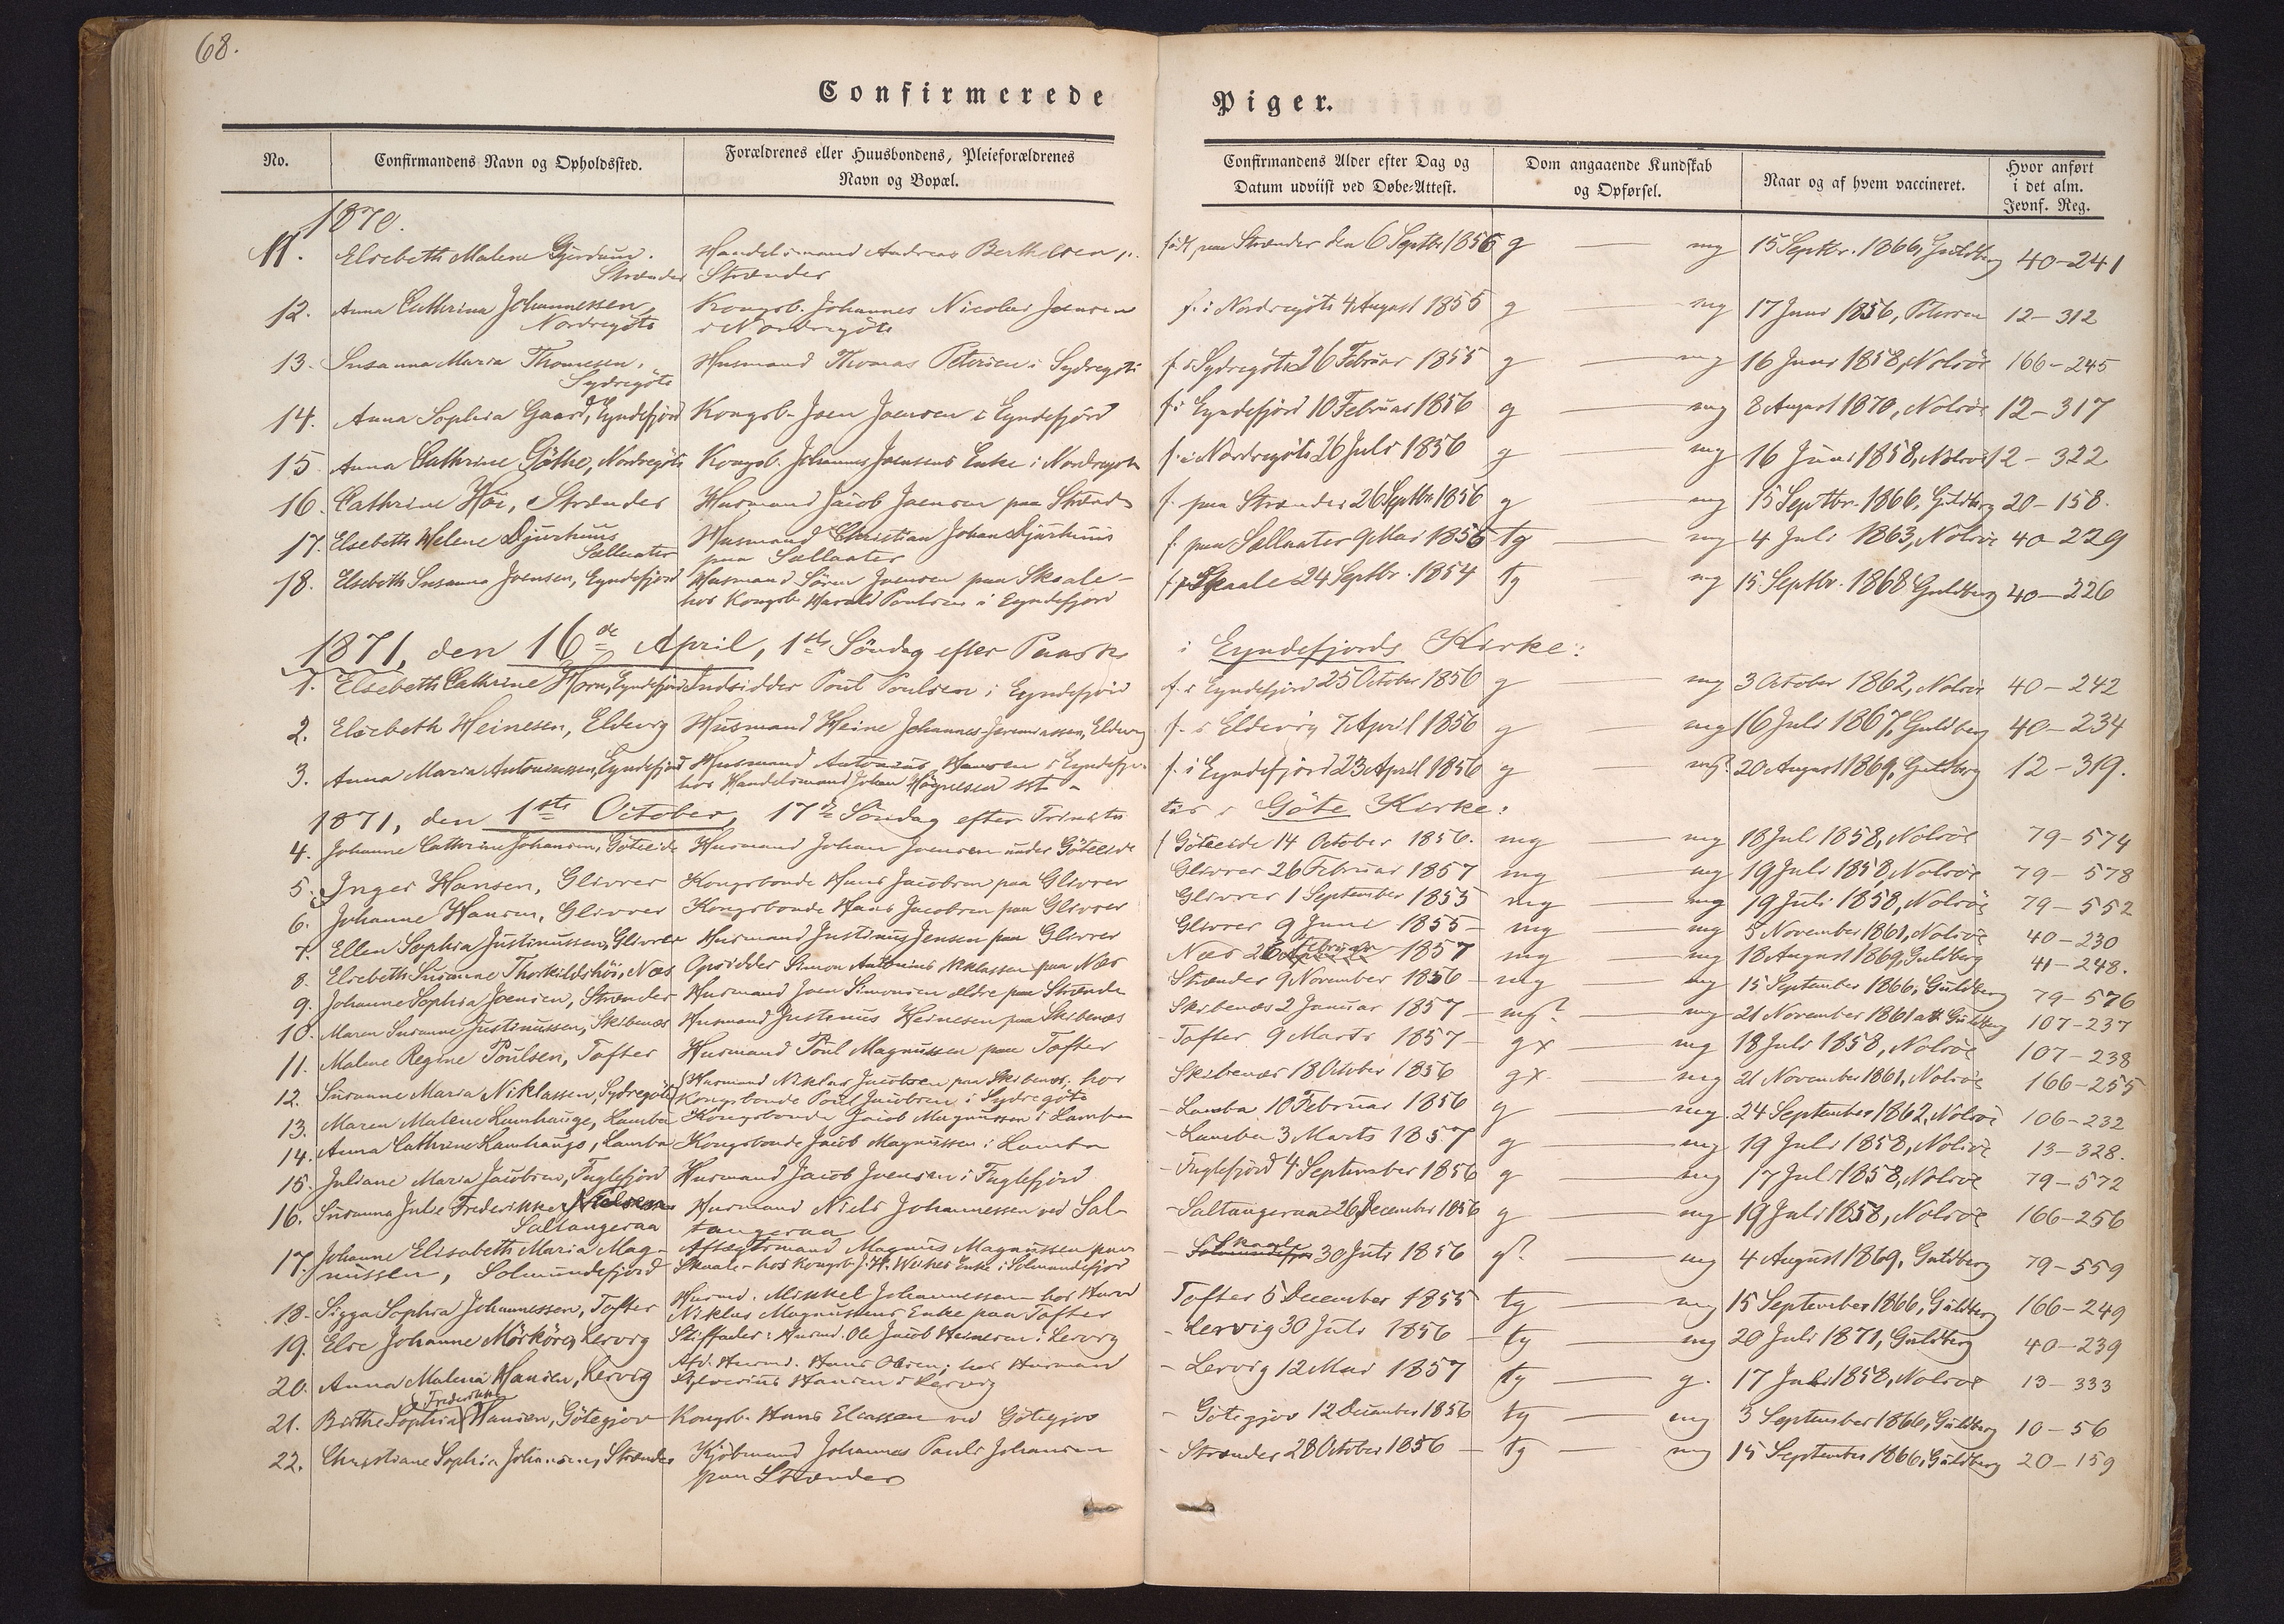 68.
Confirmerede Piger.
No. Confirmandens Navn og Opholdssted. Forældrenes eller Huusbondens, Pleieforældrenes Navn og Bopæl. Confirmandens Alder efter Dag og Datum udviist ved Døbe-Attest. Dom angaaende Kundskab og Opførsel. Naar og af hvem vaccineret. Hvor anført i det alm. Jevnf. Reg.
1870.
11. Elsebeth Malene Handelsmand Andreas Berthelsen, født paa Strænder den 6 Septbr 1856 g — mg 15 Septbr. 1866, Guldberg 40-241
Strænder Strænder
12. Anna Cathrina Johannessen, Kongsb. Johannes Nicolai Joensen f. i Nordregöte 4 August 1855 g — mg 17 Juni 1856, Petersen 12-312
Nordregöte i Nordregöte
13. Susanna Maria Thomesen, Husmand Thomas Petersen i Sydregöte f. i Sydregöte 26 Februar 1855 g — mg 16 Juni 1858, Nolsöe 166-245
Sydregöte
14. Anna Sophia Gaard, Eyndefjord Kongsb. Joen Joensen i Eyndefjörd f. i Eyndefjörd 10 Februar 1856 g — mg 8 August 1870, Nolsöe 12-317
15. Anna Cathrine Göthe, Nordregöte Kongsb. Johannes Joensens Enke i Nordregöte f. i Nordregöte 26 Juli 1856 g — mg 16 Juni 1858, Nolsöe 12-322
16. Cathrine Höi, Strænder Husmand Jacob Joensen paa Strænder f. paa Strænder 26 Septbr 1856 g — mg 15 Septbr. 1866, Guldberg 20-158.
17. Elsebeth Helene Djurhuus Husmand Christian Johan Djurhuus f. paa Sællæter 9 Mai 1856 tg — mg 4 Juli 1863, Nolsöe 40-229
Sællæter paa Sællæter
18. Elsebeth Susanna Joensen, Eyndefjord Husmand Sören Joensen paa Skaale- f. paa Skaale 24 Septbr. 1854 tg — mg 15 Septbr. 1868 Guldberg 40-226
hos Kongsb. Harald Poulsen i Eyndefjord
1871, den 16de April, 1ste Söndag efter Paaske i Eyndefjords Kirke:
1. Elsebeth Cathrine Horn, Eyndefjord Indsidder Poul Poulsen i Eyndefjörd f. i Eyndefjörd 25 October 1856 g — mg 3 October 1862, Nolsöe 40-242
2. Elsebeth Heinesen, Eldevig Husmand Heine Johannes Jeremiassen, Eldevig f. i Eldevig 7 April 1856 g — mg 16 Juli 1867, Guldberg 40-234
3. Anna Maria Antoniussen, Eyndefjord Husmand Antonius Hansen i Eyndefjord f. i Eyndefjörd 23 April 1856 g — mg? 20 August 1869, Guldberg 12-319.
hos Handelsmand Johan Högnesen
1871, den 1ste October, 17de Söndag efter Trinitatis i Göte Kirke:
4. Johanne Cathrine Johansen, Göteeide Husmand Johan Joensen under Göteeide f. Göteeide 14 October 1856. mg — mg 18 Juli 1858, Nolsöe 79-574
5. Inger Hansen, Glivrer Kongsbonde Hans Jacobsen paa Glivrer Glivrer 26 Februar 1857 mg — mg 19 Juli 1858, Nolsöe 79-578
6. Johanne Hansen, Glivrer Kongsbonde Hans Jacobsen paa Glivrer Glivrer 1 September 1855 mg — mg 19 Juli 1858, Nolsöe 79-552
7. Ellen Sophia Justinussen, Glivrer Husmand Justinus Jensen paa Glivrer Glivrer 9 Juni 1855 - mg — mg 5 November 1861, Nolsöe 40-230
8. Elsebeth Susanne Thorkildshöi, Næs Opsidder Simon Antonius Niklassen paa Næs Næs 26 Februar 1857 mg — mg 18 August 1869, Guldberg 41-248.
9. Johanne Sophia Joensen, Strænder Husmand Joen Simonsen ældre paa Strænder Strænder 9 November 1856 - mg — mg 15 September 1866, Guldberg 79-576
10. Maren Susanne Justinussen, Skibenæs Husmand Justinus Heinesen paa Skibenæs Skibenæs 2 Januar 1857 - mg? — mg 21 November 1861 Guldberg 107-237
11. Malene Regine Poulsen, Tofter Husmand Poul Magnussen paa Tofter - Tofter 9 Marts 1857 - gx — mg 18 Juli 1858, Nolsöe 107-238
12. Susanne Maria Niklassen, Sydregöte Husmand Niklas Jacobsen paa Skibenæs, hos Skibenæs 18 October 1856 gx — mg 21 November 1861, Nolsöe 166-255
Kongsbonde Poul Jacobsen i Sydregöte
13. Maren Malene Lamhauge, Lamba Kongsbonde Jacob Magnussen i Lamba - Lamba 10 Februar 1856 g — mg 24 September 1862, Nolsöe 106-232
14. Anna Cathrine Lamhauge, Lamba Kongsbonde Jacob Magnussen i Lamba - Lamba 3 Marts 1857 g — mg 19 Juli 1858, Nolsöe 13-328.
15. Juliane Maria Jacobsen, Fuglefjord Husmand Jacob Joensen i Fuglefjord - Fuglefjörd 4 September 1856 g — mg 17 Juli 1858, Nolsöe 79-572
16. Susanna Julie Frederikke Nielsen Husmand Niels Johannessen ved Sal- - Saltangeraa 26 December 1856 g — mg 19 Juli 1858, Nolsöe 166-256
Saltangeraa tangeraa
17. Johanne Elisabeth Maria Mag- Aftægtsmand Magnus Magnussen paa - Skaale 30 Juli 1856 g? — mg 4 August 1869, Guldberg 79-559
nussen, Solmundefjord Skaale - hos Kongsb. J. H. Weihes Enke i Solmundefjord
18. Sigga Sophia Johannessen, Tofter Husmd. Mikkel Johannessen hos Husmd Tofter 5 December 1855 tg — mg 15 September 1866, Guldberg 166-249
Niklas Magnussens Enke paa Tofter
19. Else Johanne Mörköre, Lervig Stiffader: Husmd. Ole Jacob Heinesen i Lervig - Lervig 30 Juli 1856 - tg — mg 20 Juli 1871, Guldberg 40-239
20. Anna Malena Hansen, Lervig Afd. Husmd. Hans Olsen; hos Husmand - Lervig 12 Mai 1857 tg — g. 17 Juli 1858, Nolsöe 13-333
Sylverius Hansen i Lervig
Frederikke
21. Birthe Sophia Hansen, Götegjov Kongsb. Hans Eliassen ved Götegjov - Götegjov 12 December 1856 tg — mg 3 September 1866, Guldberg 10-56
22. Christiane Sophia Johansen, Strænder Kjöbmand Johannes Pauli Johansen - Strænder 28 October 1856 - tg — mg 15 September 1866, Guldberg 20-159
paa Strænder